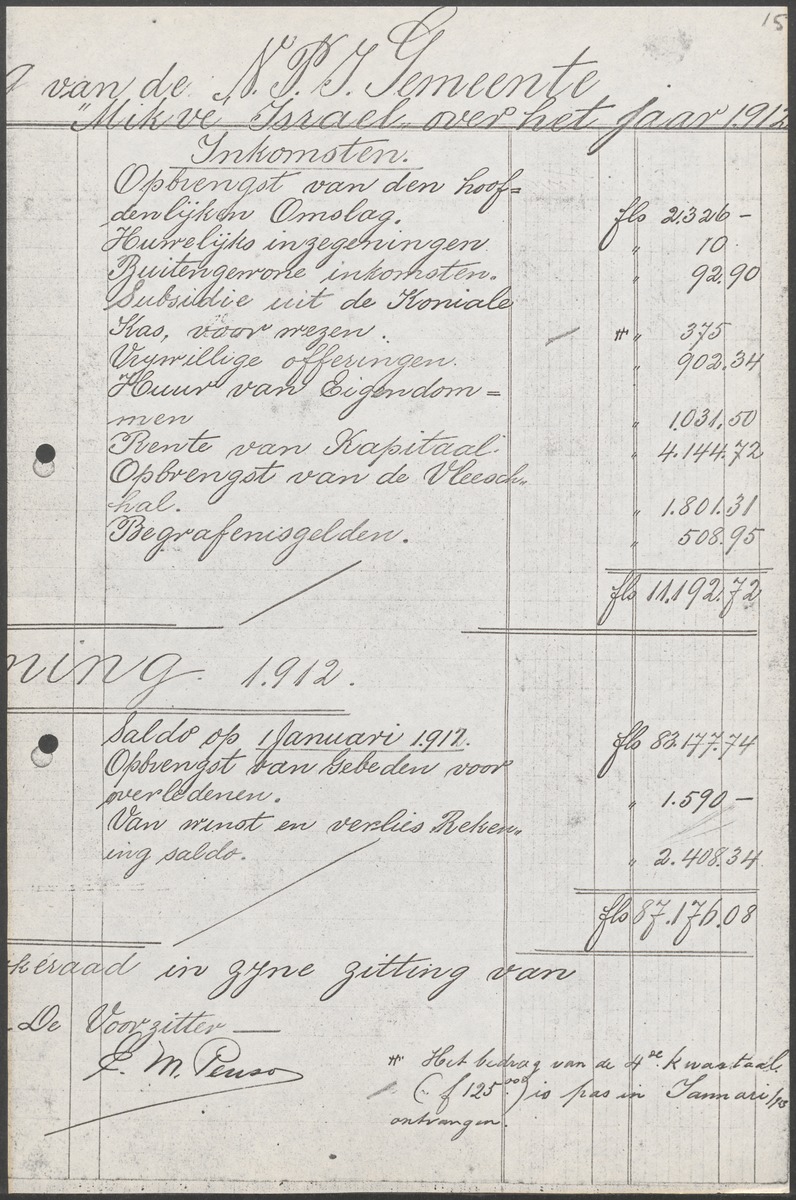 15
van de N. P. I. Gemeente
"Mikvé Israel" over het jaar 1912
Inkomsten.
Opbrengst van den hoof=
denlijken Omslag. fls 2.326 –
Huwelijks inzegeningen " 10
Buitengewone inkomsten. " 92.90
Subsidie uit de Koniale
Kas, voor wezen. " 375
Vrijwillige offeringen. " 902.34
Huur van Eigendom=
men " 1.031.50
Rente van Kapitaal. " 4.144.72
Opbrengst van de Vleesch„
hal. " 1.801.31
Begrafenisgelden. " 508.95
fls 11.192.72
ning. 1.912.
Saldo op 1 Januari 1.912. fls 83.177.74
Opbrengst van Gebeden voor
overledenen. " 1.590 –
Van winst en verlies Reken„
ing saldo. " 2.408.34
fls 87.176.08
keraad in zyne zitting van
De Voorzitter —
E. M. Penso
Het bedrag van de 4de kwartaal
(f 125.00) is pas in Januari /13
ontvangen.